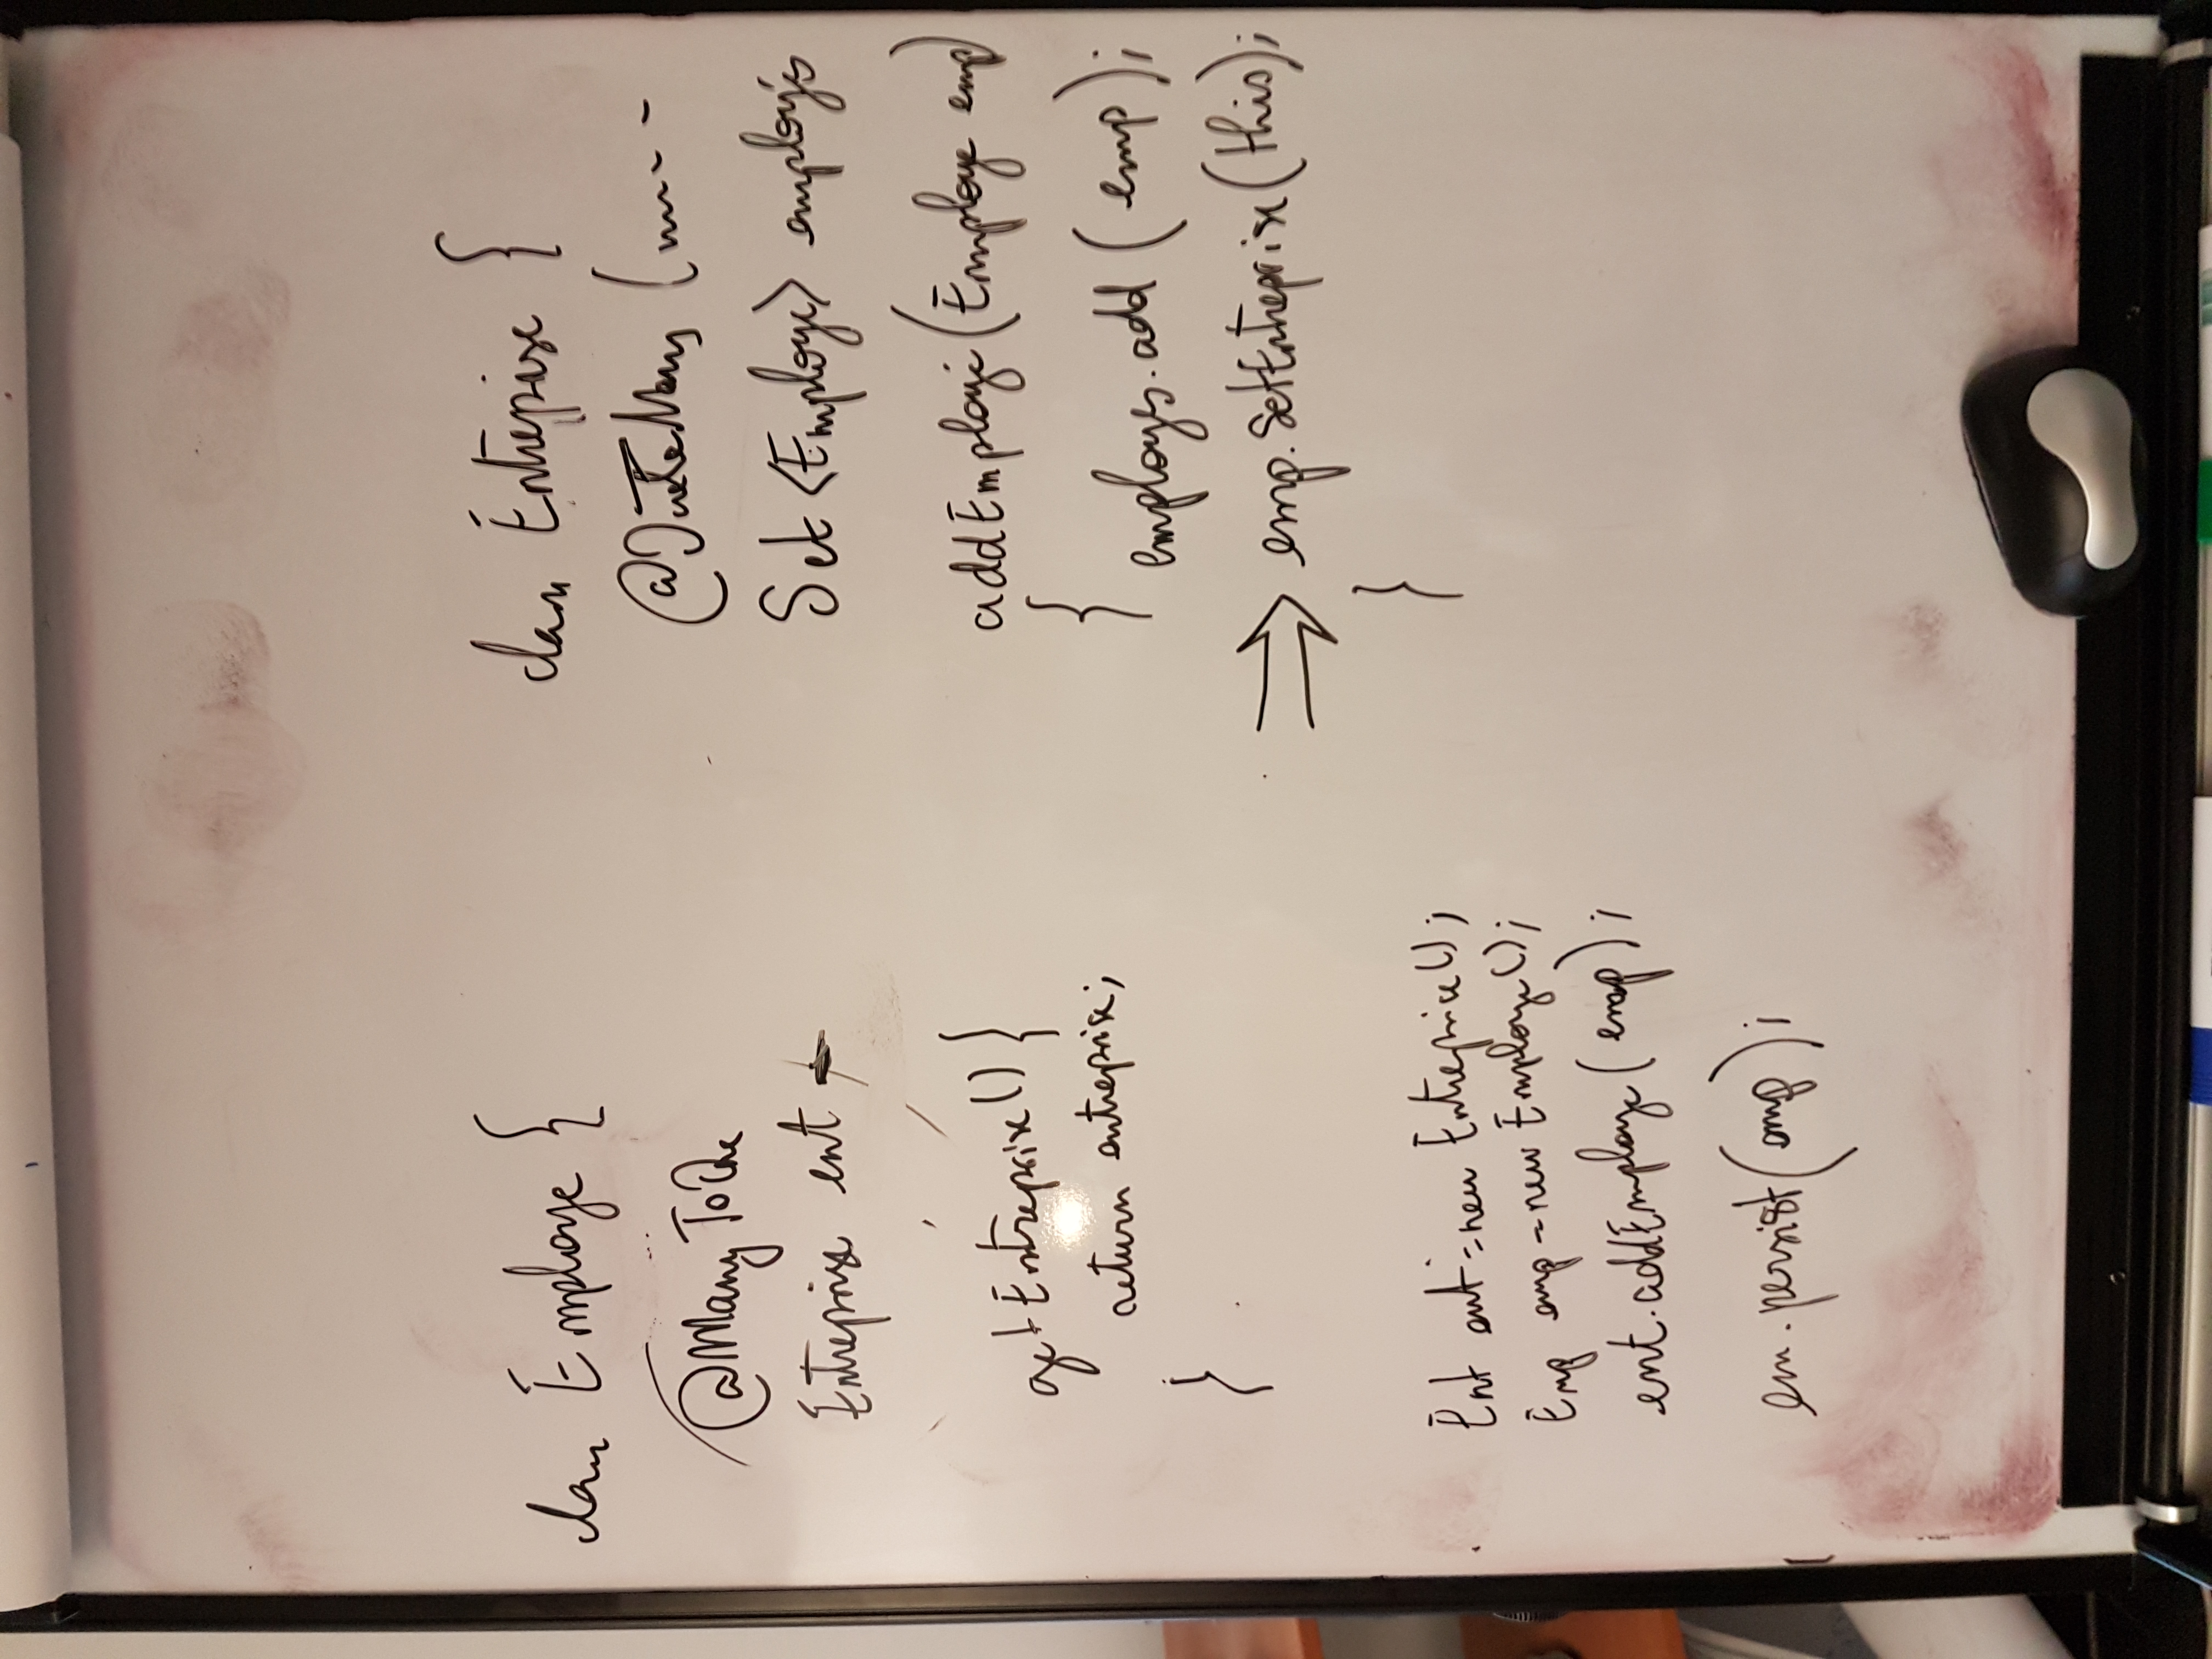 class Employe {
@ManyToOne
Entreprise ent
getEntreprise() {
return entreprise;
}
Ent ent = new Entreprise();
Emp emp = new Employe();
ent.addEmploye(emp);
em.persist(emp);
class Entreprise {
@OneToMany (
Set <Employe> employés
addEmploye(Employe emp)
{
employes.add(emp);
⇒ emp.setEntreprise(this);
}